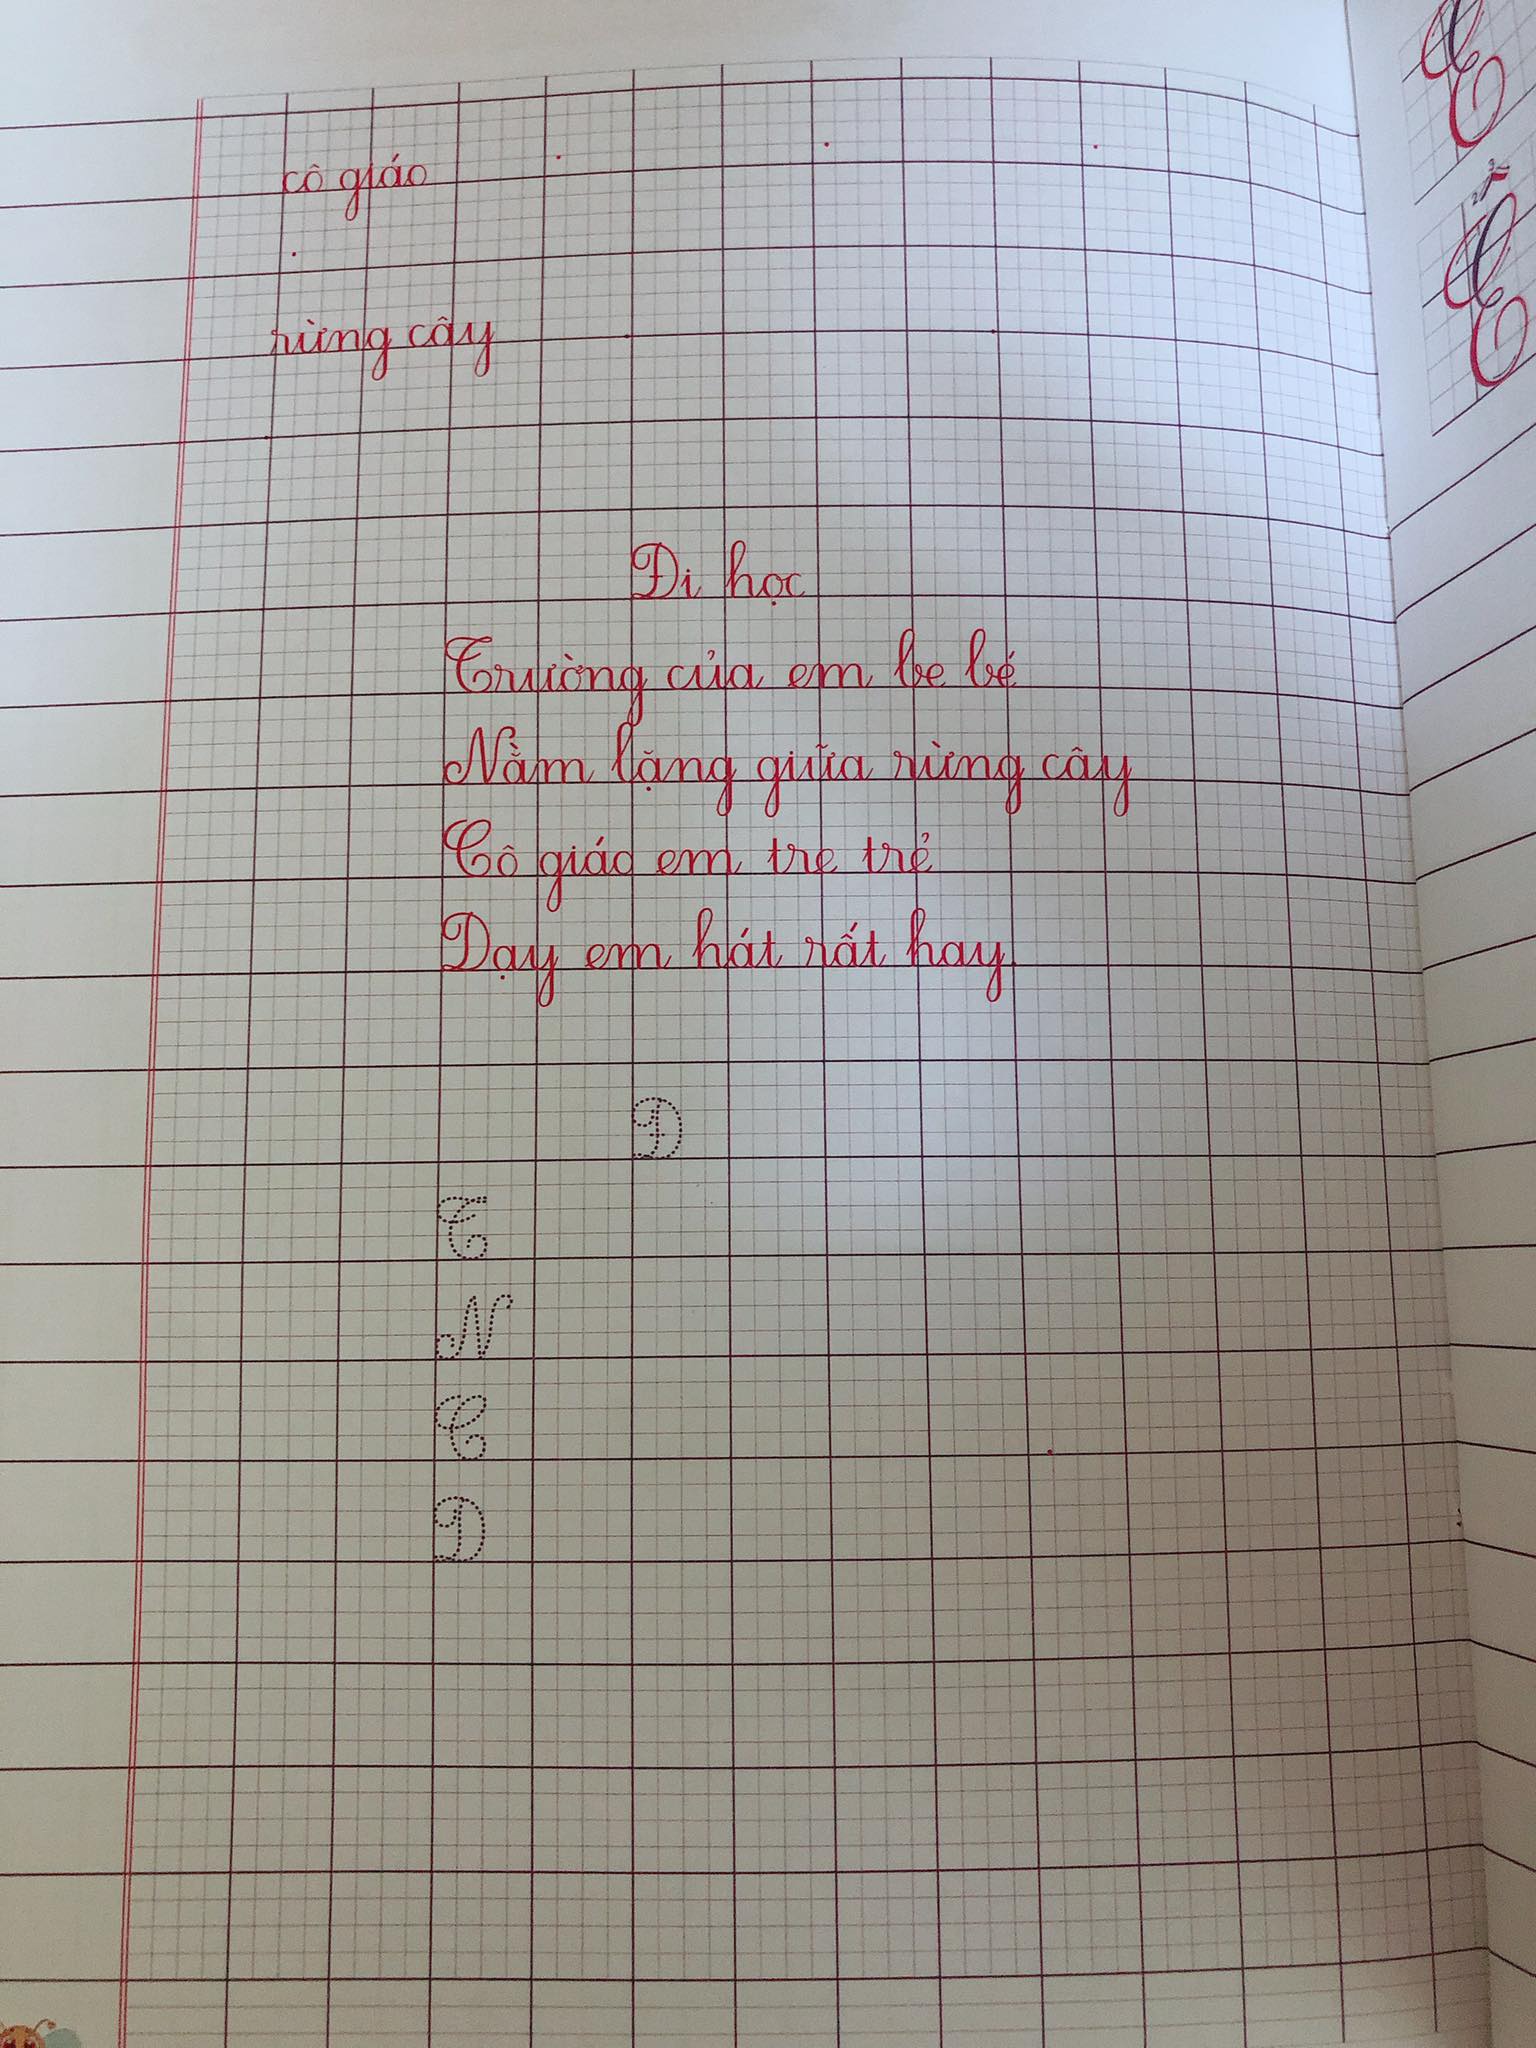 cô giáo
rừng cây
Đi học
Trường của em be bé
Nằm lặng giữa rừng cây
Cô giáo em tre trẻ
Dạy em hát rất hay
Đ
T
N
C
D